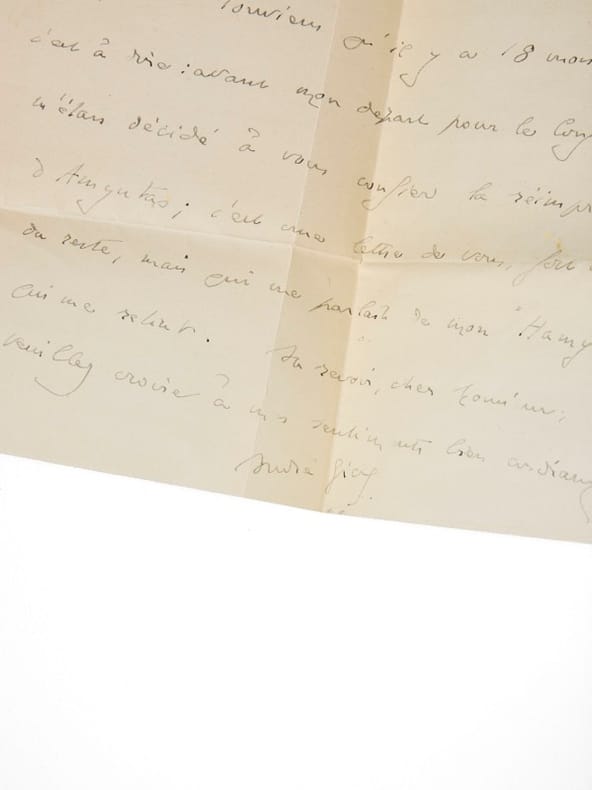 souviens qu'il y a 18 mois
c'est à dire : avant mon départ pour le Cong
m'étais décidé à vous confier la réimpr
d'Amyntas ; c'est une lettre de vous, fort
du reste, mais qui me parlait de mon "Hamy
qui me retint. Au revoir, cher Monsieur ;
veuillez croire à mes sentiments bien cordiaux
André Gide